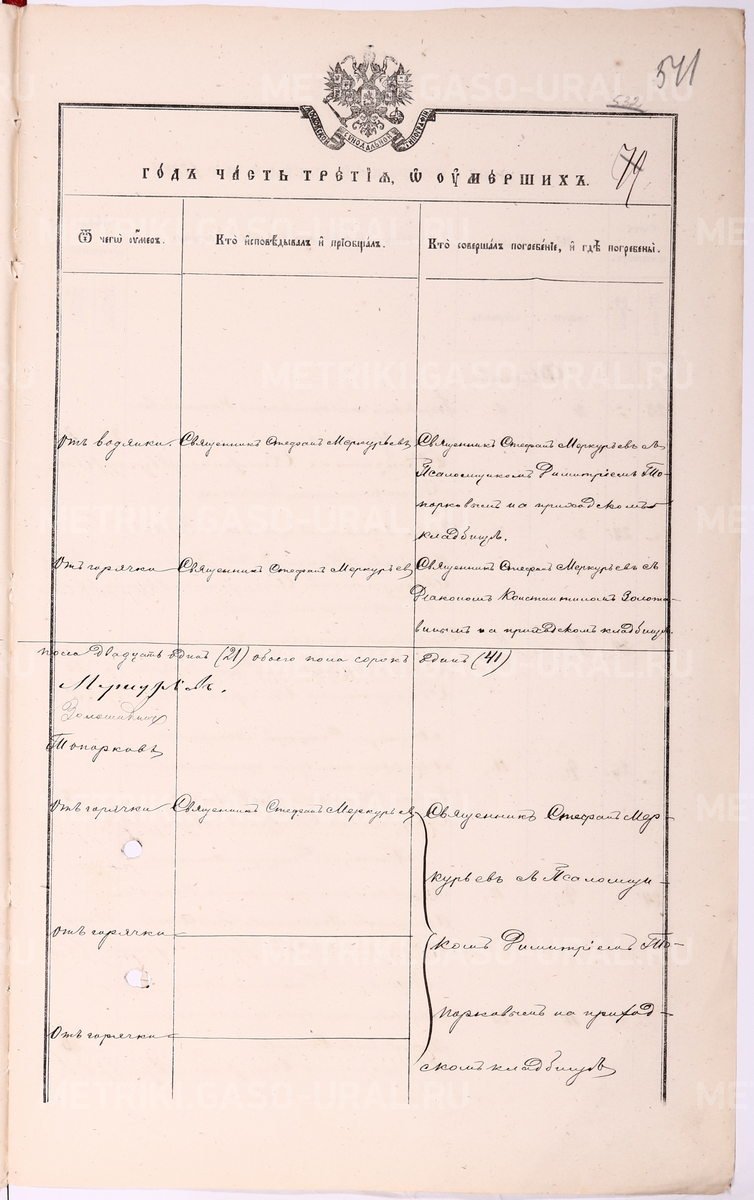 541
532
79
МОСКОВСКОЙ СѴНОДАЛЬНОЙ ТИПОГРАФІИ
ГОДЪ ЧАСТЬ ТРЕТІѦ, Ѡ ОУМЕРШИХЪ.
Ѿ чегѡ оумеръ.
Кто исповѣдывалъ и прїобщалъ.
Кто совершалъ погребенїе, и гдѣ погребены.
Отъ водянки.
Священникъ Стефанъ Меркурьевъ
Священникъ Стефанъ Меркурьевъ съ
Псаломщикомъ Димитріемъ То-
порковымъ на приходскомъ
кладбищѣ.
Отъ горячки
Священникъ Стефанъ Меркурьевъ
Священникъ Стефанъ Меркурьевъ съ
Діакономъ Константиномъ Золота-
винымъ на приходскомъ кладбищѣ.
пола двадцать одинъ (21) обоего пола сорокъ одинъ (41)
Меркурьевъ.
Топорковъ
Отъ горячки
Священникъ Стефанъ Меркурьевъ
Священникъ Стефанъ Мер-
курьевъ съ Псаломщи-
комъ Димитріемъ То-
порковымъ на приход-
скомъ кладбищѣ
Отъ горячки
Отъ горячки
METRIKI.GASO-URAL.RU